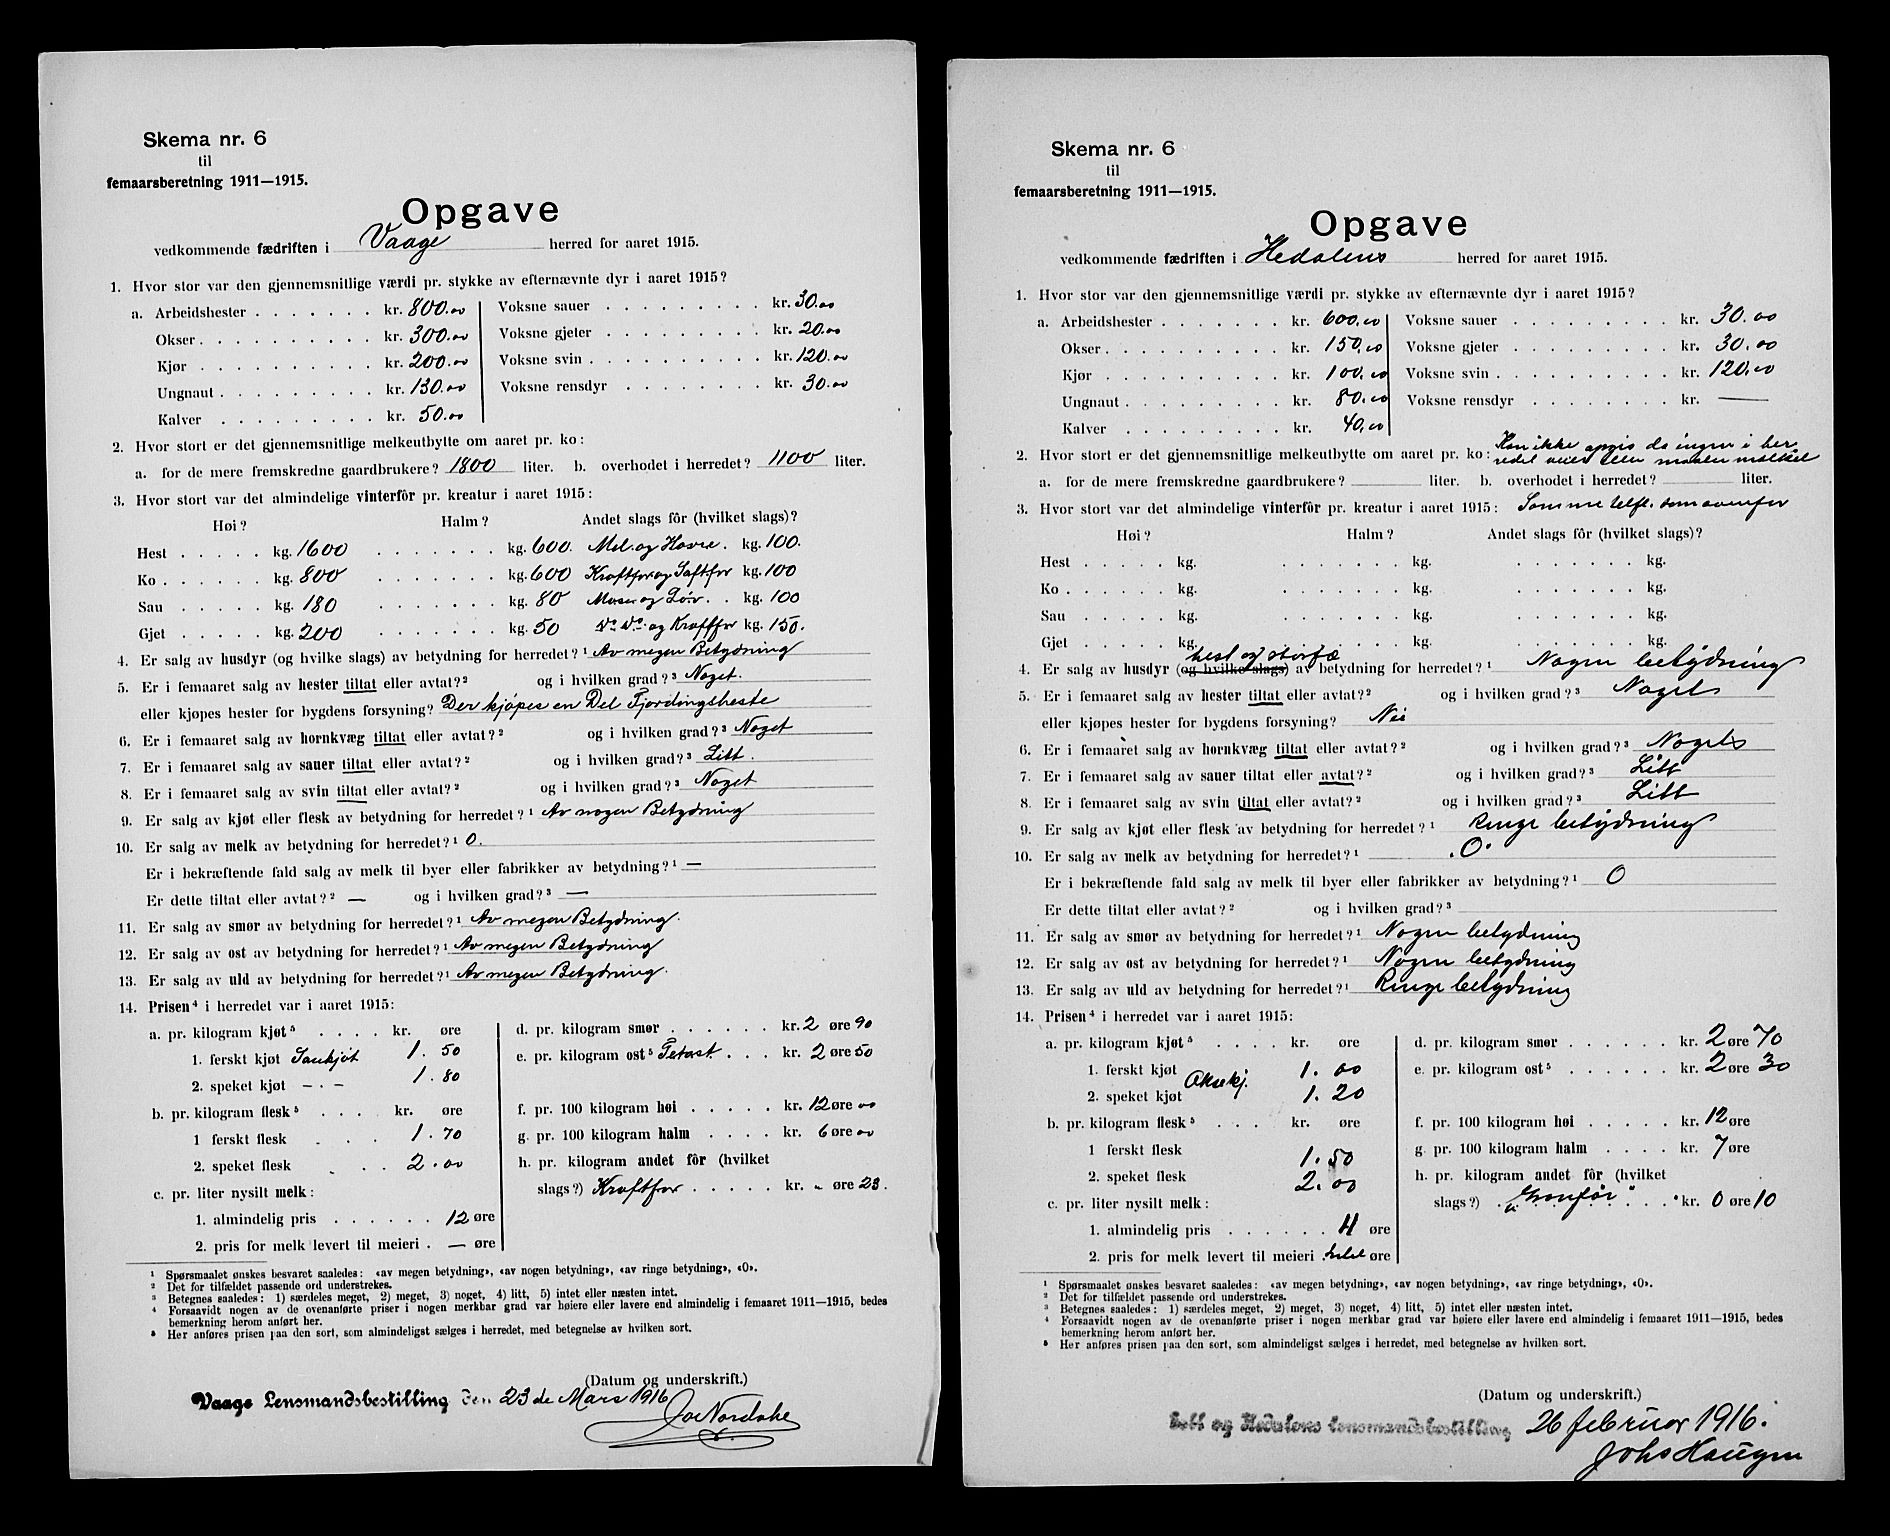 Skema nr. 6
til
femaarsberetning 1911—1915.
Opgave
vedkommende fædriften i Vaage herred for aaret 1915.
1. Hvor stor var den gjennemsnitlige værdi pr. stykke av efternævnte dyr i aaret 1915?
a. Arbeidshester . . . . . . . kr. 800.00 Voksne sauer . . . . . . . . kr. 30.00
Okser . . . . . . . . . . kr. 300.00 Voksne gjeter . . . . . . . . kr. 20.00
Kjør . . . . . . . . . . kr. 200.00 Voksne svin . . . . . . . . . kr. 120.00
Ungnaut . . . . . . . . . kr. 130.00 Voksne rensdyr . . . . . . . kr. 30.00
Kalver . . . . . . . . . kr. 50.00
2. Hvor stort er det gjennemsnitlige melkeutbytte om aaret pr. ko:
a. for de mere fremskredne gaardbrukere? 1800 liter. b. overhodet i herredet? 1100 liter.
3. Hvor stort var det almindelige vinterfôr pr. kreatur i aaret 1915:
Høi? Halm? Andet slags fôr (hvilket slags)?
Hest . . . . . kg. 1600 . . . . . . . kg. 600. Mel. og Havre. kg. 100.
Ko . . . . . . kg. 800 . . . . . . . kg. 600 Kraftfor og Saftfor kg. 100
Sau . . . . . kg. 180 . . . . . . . kg. 80 Mose og Löv . . kg. 100
Gjet . . . . . kg. 200 . . . . . . . kg. 50 Do Do og Kraftfor kg. 150.
4. Er salg av husdyr (og hvilke slags) av betydning for herredet?¹ Av megen Betydning
5. Er i femaaret salg av hester tiltat eller avtat?² og i hvilken grad?³ Noget.
eller kjøpes hester for bygdens forsyning? Der kjöpes en Del Fjordingsheste
6. Er i femaaret salg av hornkvæg tiltat eller avtat?² og i hvilken grad?³ Noget
7. Er i femaaret salg av sauer tiltat eller avtat?² og i hvilken grad?³ Litt.
8. Er i femaaret salg av svin tiltat eller avtat?² og i hvilken grad?³ Noget
9. Er salg av kjøt eller flesk av betydning for herredet?¹ Av nogen Betydning
10. Er salg av melk av betydning for herredet?¹ 0.
Er i bekræftende fald salg av melk til byer eller fabrikker av betydning?¹ —
Er dette tiltat eller avtat?² — og i hvilken grad?³ —
11. Er salg av smør av betydning for herredet?¹ Av megen Betydning.
12. Er salg av ost av betydning for herredet?¹ Av megen Betydning
13. Er salg av uld av betydning for herredet?¹ Av megen Betydning.
14. Prisen⁴ i herredet var i aaret 1915:
a. pr. kilogram kjøt⁵ . . . . kr. øre d. pr. kilogram smør . . . . . . kr. 2 øre 90
1. ferskt kjøt Saukjöt 1. 50 e. pr. kilogram ost⁵ Fetost . . . kr. 2 øre 50
2. speket kjøt — . — 1. 80
b. pr. kilogram flesk⁵ . . . . kr. øre f. pr. 100 kilogram høi . . . . . kr. 12 øre 00
1 ferskt flesk . . . 1. 70 g. pr. 100 kilogram halm . . . . kr. 6 øre 00
2. speket flesk . . . 2. 00 h. pr. kilogram andet fôr (hvilket
c. pr. liter nysilt melk: slags?) Kraftfor . . . . . kr. „ øre 23.
1. almindelig pris . . . . . . 12 øre
2. pris for melk levert til meieri . — øre
¹ Spørsmaalet ønskes besvaret saaledes: «av megen betydning», «av nogen betydning», «av ringe betydning», «0».
² Det for tilfældet passende ord understrekes.
³ Betegnes saaledes: 1) særdeles meget, 2) meget, 3) noget, 4) litt, 5) intet eller næsten intet.
⁴ Forsaavidt nogen av de ovenanførte priser i nogen merkbar grad var høiere eller lavere end almindelig i femaaret 1911—1915, bedes
bemerkning herom anført her.
⁵ Her anføres prisen paa den sort, som almindeligst sælges i herredet, med betegnelse av hvilken sort.
(Datum og underskrift.)
Vaage Lensmandsbestilling den 23 de Mars 1916

Skema nr. 6
til
femaarsberetning 1911—1915.
Opgave
vedkommende fædriften i Hedalens herred for aaret 1915.
1. Hvor stor var den gjennemsnitlige værdi pr. stykke av efternævnte dyr i aaret 1915?
a. Arbeidshester . . . . . . . kr. 600,00 Voksne sauer . . . . . . . . kr. 30.00
Okser . . . . . . . . . . kr. 150,00 Voksne gjeter . . . . . . . . kr. 30.00
Kjør . . . . . . . . . . kr. 100,00 Voksne svin . . . . . . . . . kr. 120,00
Ungnaut . . . . . . . . . kr. 80,00 Voksne rensdyr . . . . . . . kr. —
Kalver . . . . . . . . . kr. 40,00
2. Hvor stort er det gjennemsnitlige melkeutbytte om aaret pr. ko: Kan ikke opgis da ingen i her
redet veier eller maaler melken
a. for de mere fremskredne gaardbrukere? liter. b. overhodet i herredet? liter.
3. Hvor stort var det almindelige vinterfôr pr. kreatur i aaret 1915: Samme som ovenfor
Høi? Halm? Andet slags fôr (hvilket slags)?
Hest . . . . . kg. . . . . . . . kg. . . . . . . . kg.
Ko . . . . . . kg. . . . . . . . kg. . . . . . . . kg.
Sau . . . . . kg. . . . . . . . kg. . . . . . . . kg.
Gjet . . . . . kg. . . . . . . . kg. . . . . . . . kg.
hest og storfæ
4. Er salg av husdyr (og hvilke slags) av betydning for herredet?¹ Nogen betydning
5. Er i femaaret salg av hester tiltat eller avtat?² og i hvilken grad?³ Noget
eller kjøpes hester for bygdens forsyning? Nei
6. Er i femaaret salg av hornkvæg tiltat eller avtat?² og i hvilken grad?³ Noget
7. Er i femaaret salg av sauer tiltat eller avtat?² og i hvilken grad?³ Litt
8. Er i femaaret salg av svin tiltat eller avtat?² og i hvilken grad?³ Litt
9. Er salg av kjøt eller flesk av betydning for herredet?¹ Ringe betydning
10. Er salg av melk av betydning for herredet?¹ .0.
Er i bekræftende fald salg av melk til byer eller fabrikker av betydning?¹ 0
Er dette tiltat eller avtat?² og i hvilken grad?³
11. Er salg av smør av betydning for herredet?¹ Nogen betydning
12. Er salg av ost av betydning for herredet?¹ Nogen betydning
13. Er salg av uld av betydning for herredet?¹ Ringe betydning
14. Prisen⁴ i herredet var i aaret 1915:
a. pr. kilogram kjøt⁵ . . . . kr. øre d. pr. kilogram smør . . . . . . kr. 2 øre 70
1. ferskt kjøt Oksekj. 1. 00 e. pr. kilogram ost⁵ . . . . . . kr. 2 øre 30
2. speket kjøt 1. 20
b. pr. kilogram flesk⁵ . . . kr. øre f. pr. 100 kilogram høi . . . . . kr. 12 øre
1 ferskt flesk 1. 50 g. pr. 100 kilogram halm . . . . kr. 7 øre
2. speket flesk 2. 00 h. pr. kilogram andet fôr (hvilket
c. pr. liter nysilt melk: slags?) . . . . . kr. 0 øre 10
1. almindelig pris . . . . . . øre
2. pris for melk levert til meieri øre
¹ Spørsmaalet ønskes besvaret saaledes: «av megen betydning», «av nogen betydning», «av ringe betydning», «0».
² Det for tilfældet passende ord understrekes.
³ Betegnes saaledes: 1) særdeles meget, 2) meget, 3) noget, 4) litt, 5) intet eller næsten intet.
⁴ Forsaavidt nogen av de ovenanførte priser i nogen merkbar grad var høiere eller lavere end almindelig i femaaret 1911—1915, bedes
bemerkning herom anført her.
⁵ Her anføres prisen paa den sort, som almindeligst sælges i herredet, med betegnelse av hvilken sort.
(Datum og underskrift.)
og Hedalens lensmandsbestilling 26 februar 1916.
Johs Haugen